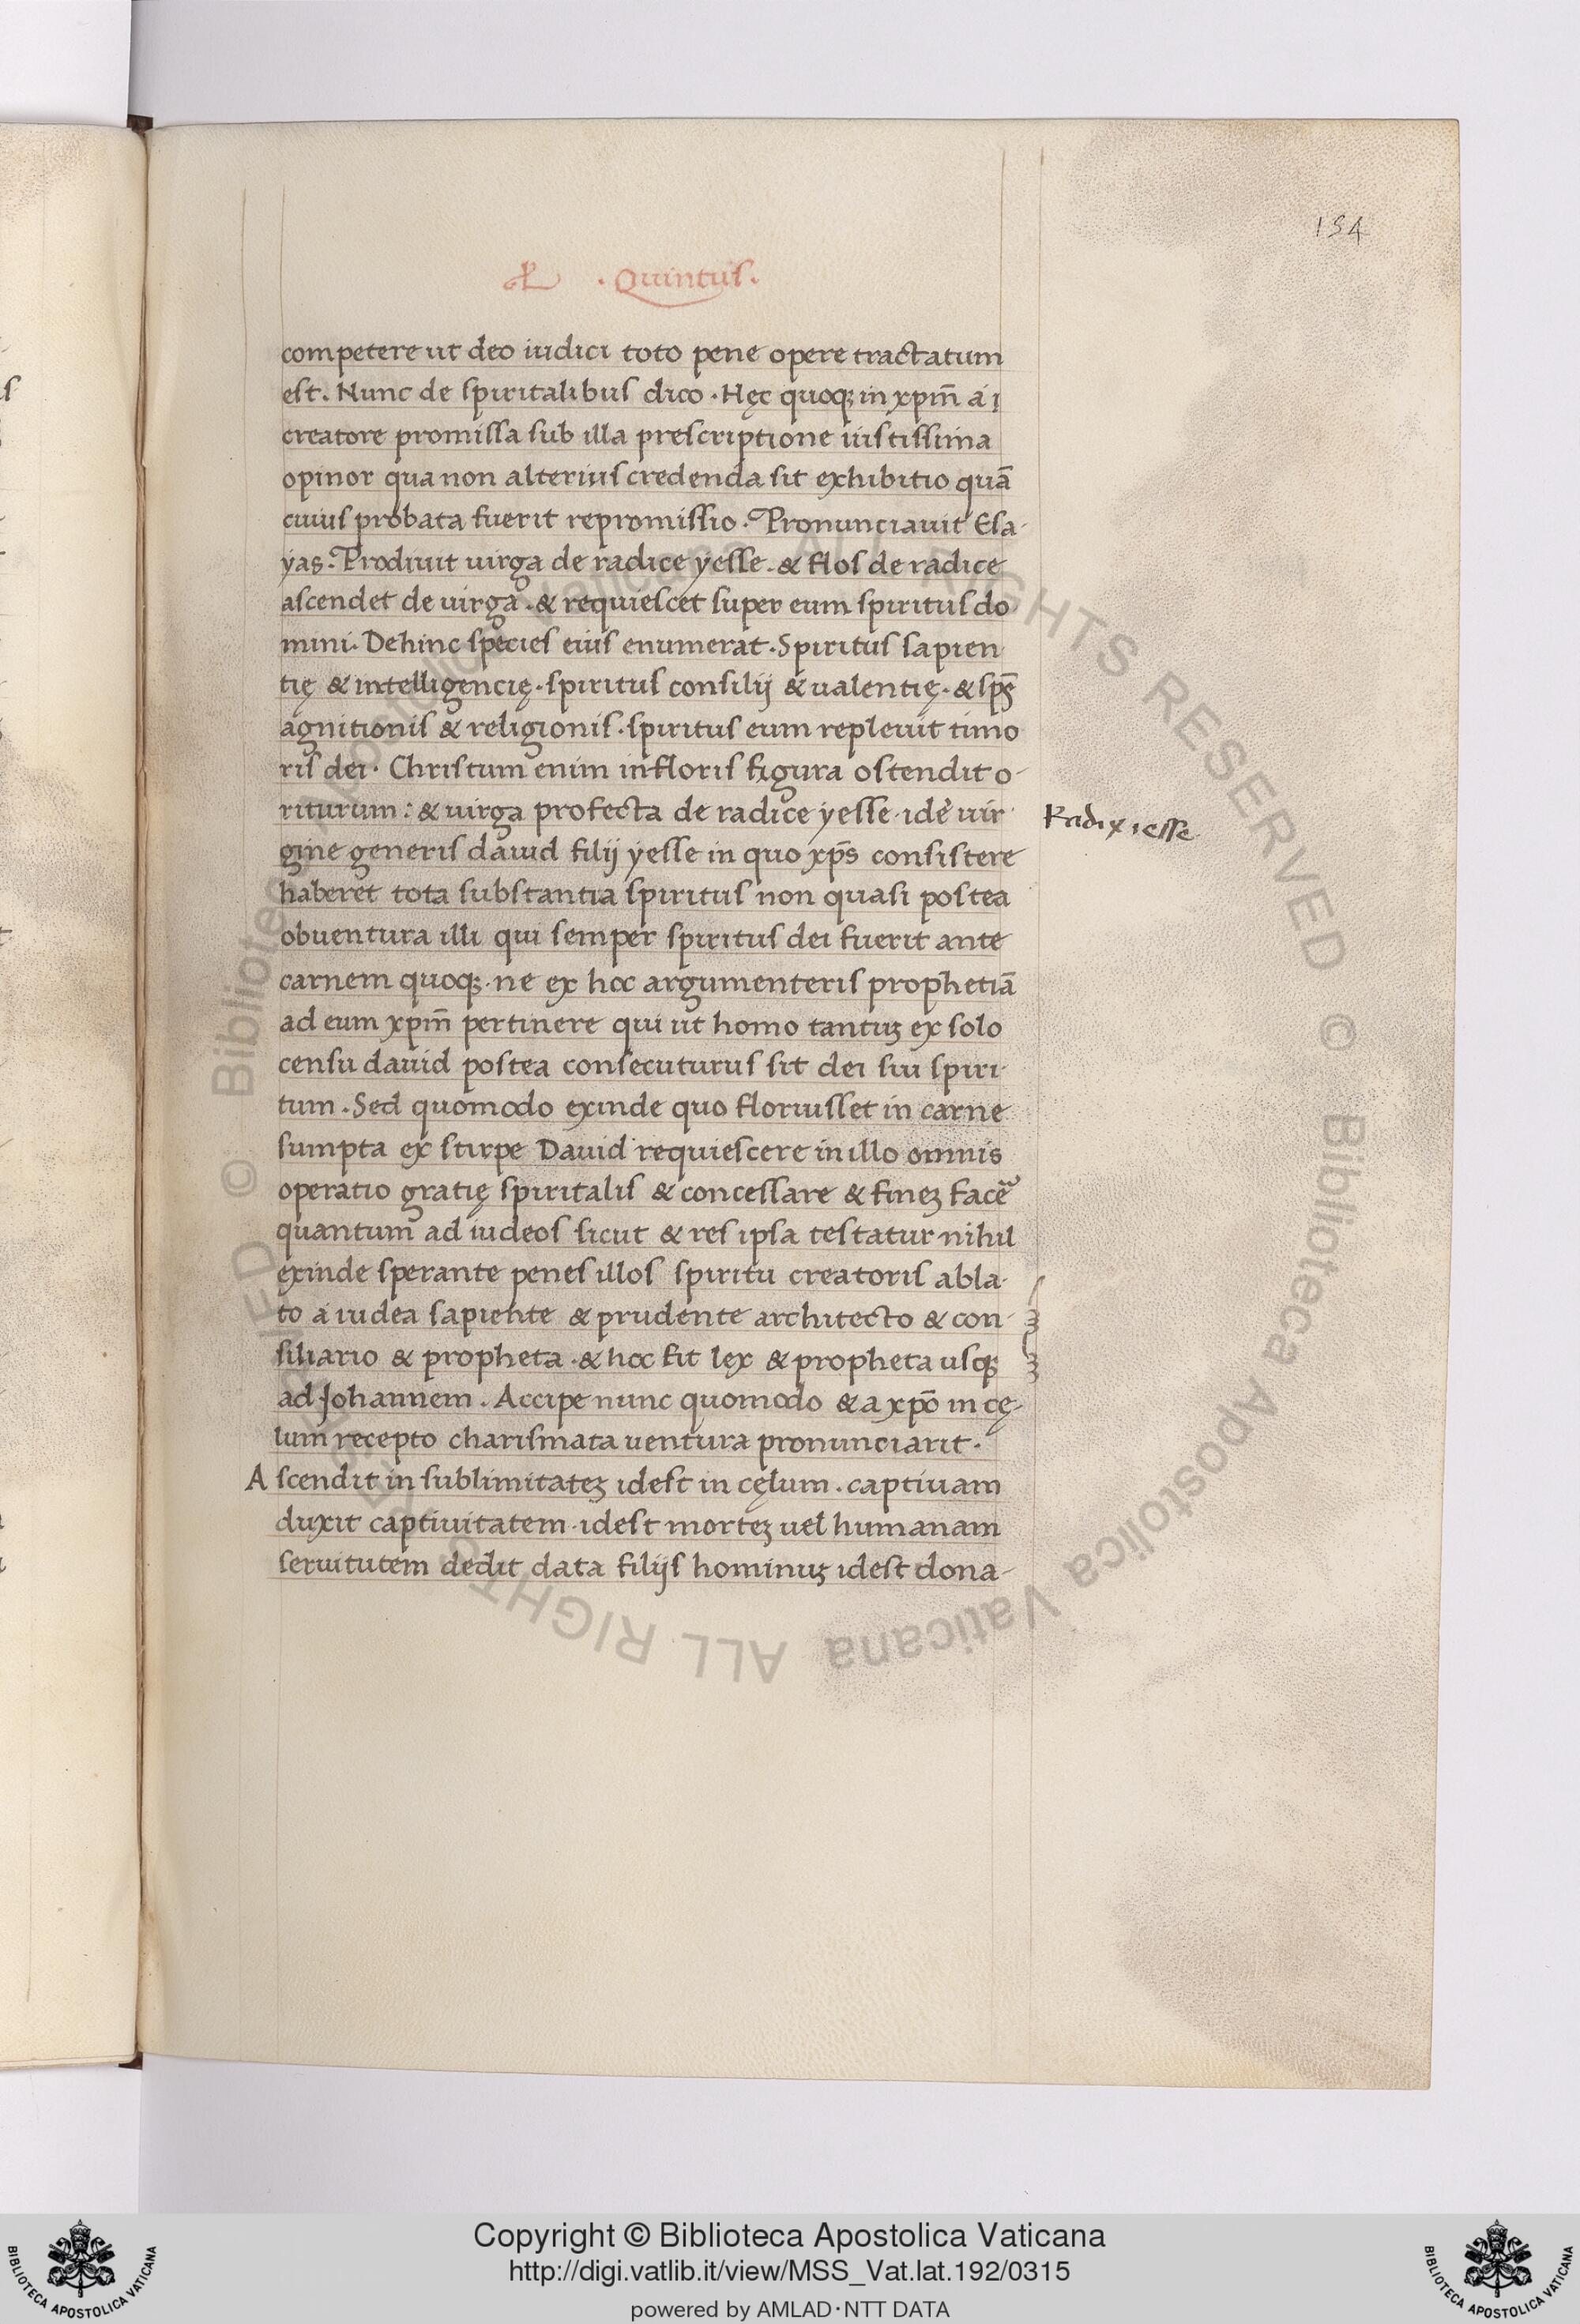 154
·Quintus·
competere ut deo iudici toto pene opere tractatum
est. Nunc de spiritalibus dico. Hęc quoqꝫ in xpm̄ a
creatore promissa sub illa prescriptione iustissima
opinor qua non alterius credenda sit exhibitio quā
cuius probata fuerit repromissio. Pronunciauit Esa-
yas. Prodiuit uirga de radice yesse. & flos de radice
ascendet de uirga. & requiescet super eum spiritus do
mini. Dehinc species eius enumerat. Spiritus sapien
tię & intelligencię. spiritus consilij & ualentię. & sps̄
agnitionis & religionis. spiritus eum repleuit timo
ris dei. Christum enim in floris figura ostendit o-
riturum: & uirga profecta de radice yesse. idē uir
Radix iesse
gine generis dauid filij yesse in quo xps̄ consistere
haberet tota substantia spiritus non quasi postea
obuentura illi qui semper spiritus dei fuerit ante
carnem quoqꝫ. ne ex hoc argumenteris prophetiā
ad eum xpm̄ pertinere qui ut homo tantuꝫ ex solo
censu dauid postea consecuturus sit dei sui spiri
tum. Sed quomodo exinde quo floruisset in carne
sumpta ex stirpe Dauid requiescere in illo omnis
operatio gratię spiritalis & concessare & fineꝫ facē
quantum ad iudeos sicut & res ipsa testatur nihil
exinde sperante penes illos spiritu creatoris abla-
to a iudea sapiente & prudente architecto & con-
siliario & propheta. & hoc fit lex & propheta usqꝫ
ad Johannem. Accipe nunc quomodo & a xpō in cę-
lum recepto charismata uentura pronunciarit.
Ascendit in sublimitateꝫ idest in cęlum. captiuam
duxit captiuitatem. idest morteꝫ uel humanam
seruitutem dedit data filijs hominuꝫ idest dona-
© Biblioteca Apostolica Vaticana ALL RIGHTS RESERVED © Biblioteca Apostolica Vaticana ALL RIGHTS RESERVED
Copyright © Biblioteca Apostolica Vaticana
http://digi.vatlib.it/view/MSS_Vat.lat.192/0315
powered by AMLAD·NTT DATA
BIBLIOTECA APOSTOLICA VATICANA
BIBLIOTECA APOSTOLICA VATICANA